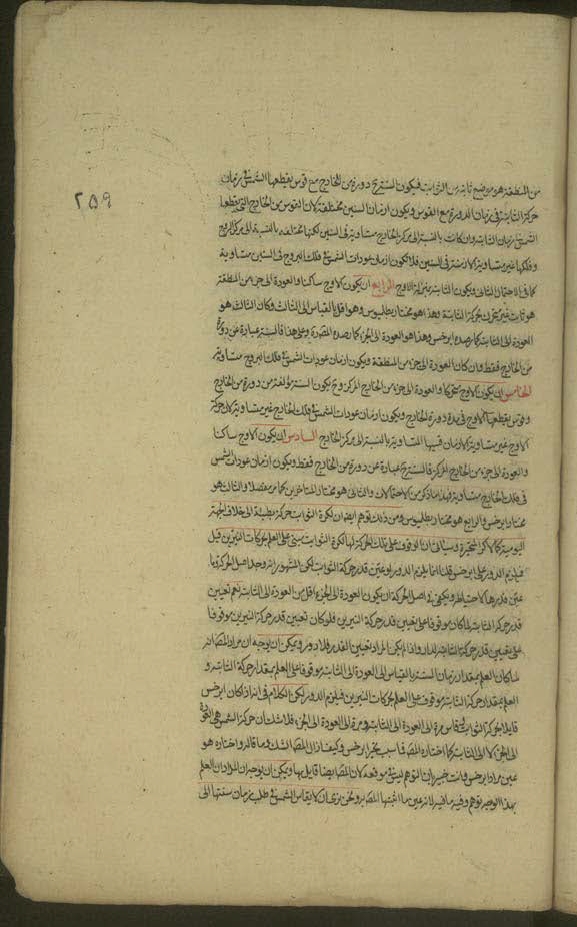 ٢٥٩
من المنطقة هو موضع ثابتة من الثوابت فيكون السنة ح دورة من الخارج مع قوس يقطعها الشمس في زمان
حركة الثابتة في زمان الدورة مع القوس ويكون ازمان السنين مختلفة لان القوس من الخارج التي يقطعها
الشمس في زمان الثابتة وان كانت بالنسبة الى مركز الخارج متساوية في السنين لكنها مختلفة بالنسبة الى مركز البروج
وفلكها غير متساوية الازمنة في السنين فلا تكون ازمان عودات الشمس في فلك البروج في السنين متساوية
كما في الاحتمال الثاني ويكون الثابتة بمنزلة الاوج الرابع ان يكون الاوج ساكنا والعودة الى جزء من المنطقة
هو ثابت غير متحرك بحركة الثابتة وهذا هو مختار بطلميوس وهو اقل بالقياس الى الثالث وكان الثالث هو
العودة الى الثابتة كما رصده ابرخس وهذا هو العودة الى الجزء كما رصده المص وعلى هذا فالسنة عبارة عن دورة
من الخارج فقط وان كان العودة الى جزء من المنطقة ويكون ازمان عودات الشمس في فلك البروج متساوية
الخامس ان يكون الاوج متحركا والعودة الى جزء من الخارج المركز وح يكون السنة مؤلفة من دورة من الخارج
وقوس يقطعها الاوج في مدة دورة الخارج ويكون ازمان عودات الشمس في فلك الخارج غير متساوية لان حركة
الاوج غير متساوية الازمان قسيها المتساوية بالنسبة الى مركز الخارج السادس ان يكون الاوج ساكنا
والعودة الى جزء من الخارج المركز فالسنة ح عبارة عن دورة من الخارج فقط ويكون ازمان عودات الشمس
في فلك الخارج متساوية فهذا ما ذكر من الاحتمالات والثاني هو مختار المتاخرين كما مر مفصلا والثالث هو
مختار ابرخس والرابع هو مختار بطلميوس ومن ذلك توهم ايضا ان لكرة الثوابت حركة بطيئة الى خلاف الجهة
اليومية كما لاكر المتحيرة وسياتي ان الوقوف على تلك الحركة لها لكرة الثوابت يبتني على العلم بحركات النيرين قبل
فيلزم الدور على ابرخس قلنا انما يلزم الدور لو عين قدر حركة الثوابت لكن المشهور انه وجد اصل الحركة وما
عين قدرها لاحتياط ويكفي في اصل الحركة ان يكون العودة الى الجزء اقل من العودة الى الثابتة نعم تعيين
قدر حركة الثابتة لما كان موقوفا على تعيين قدر حركة النيرين فلو كان تعيين قدر حركة النيرين موقوفا
على تعيين قدر حركة الثابتة لدار واذا لم يكن المراد تعيين القدر فلا دور ويمكن ان يوجه ان مراد المص انه
لما كان العلم بمقدار زمان السنة بالقياس الى العودة الى الثابتة موقوفا على العلم بمقدار حركة الثابتة و
العلم بمقدار حركة الثابتة موقوف على العلم بحركات النيرين فيلزم الدور لكن الكلام في انه اذا كان ابرخس
قايلا بحركة الثوابت وقاس مرة الى العودة الى الثابتة ومرة الى العودة الى الجزء فلا شك ان حركة الشمس هي العودة
الى الجزء لا الى الثابتة كما اختاره المص فما سبب تحير ابرخس وكيف ازال المص الشك وما قاله واختاره هو
عين مراد ابرخس وانت خبير بان التوهم ليس في موقعه لان المص ايضا قايل بها ويمكن ان يوجه ان المراد ان العلم
بهذا الوجه توهم وفيه ما فيه لانه عين ما اثبتها المص به ونحن نرى ان لا يقاس الشمس في طلب زمان سنتها الى